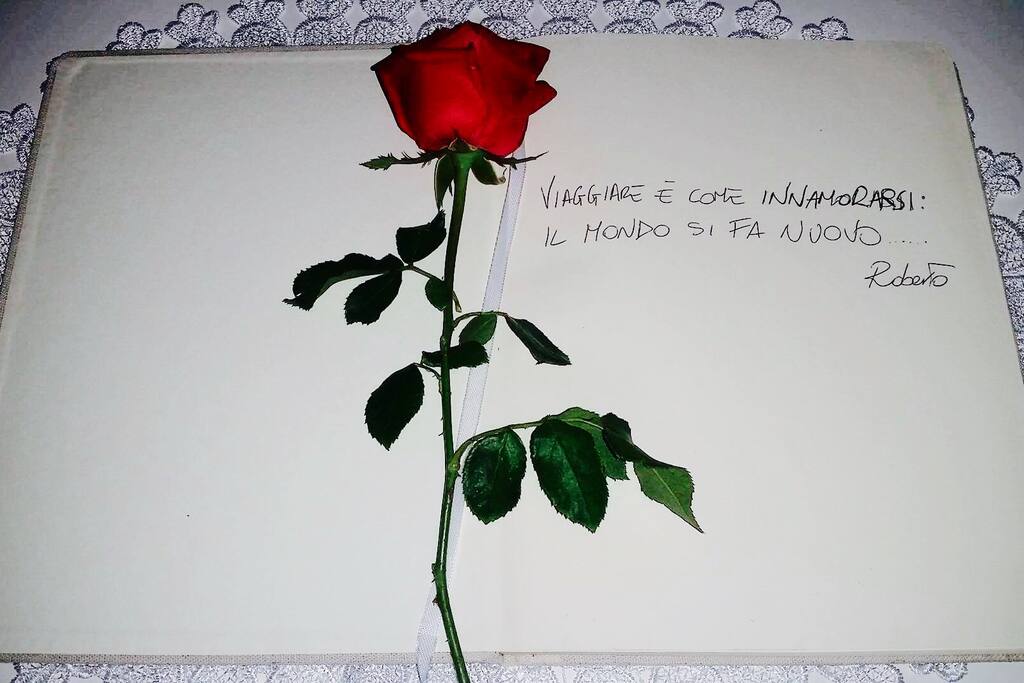 VIAGGIARE È COME INNAMORARSI:
IL MONDO SI FA NUOVO......
Roberto